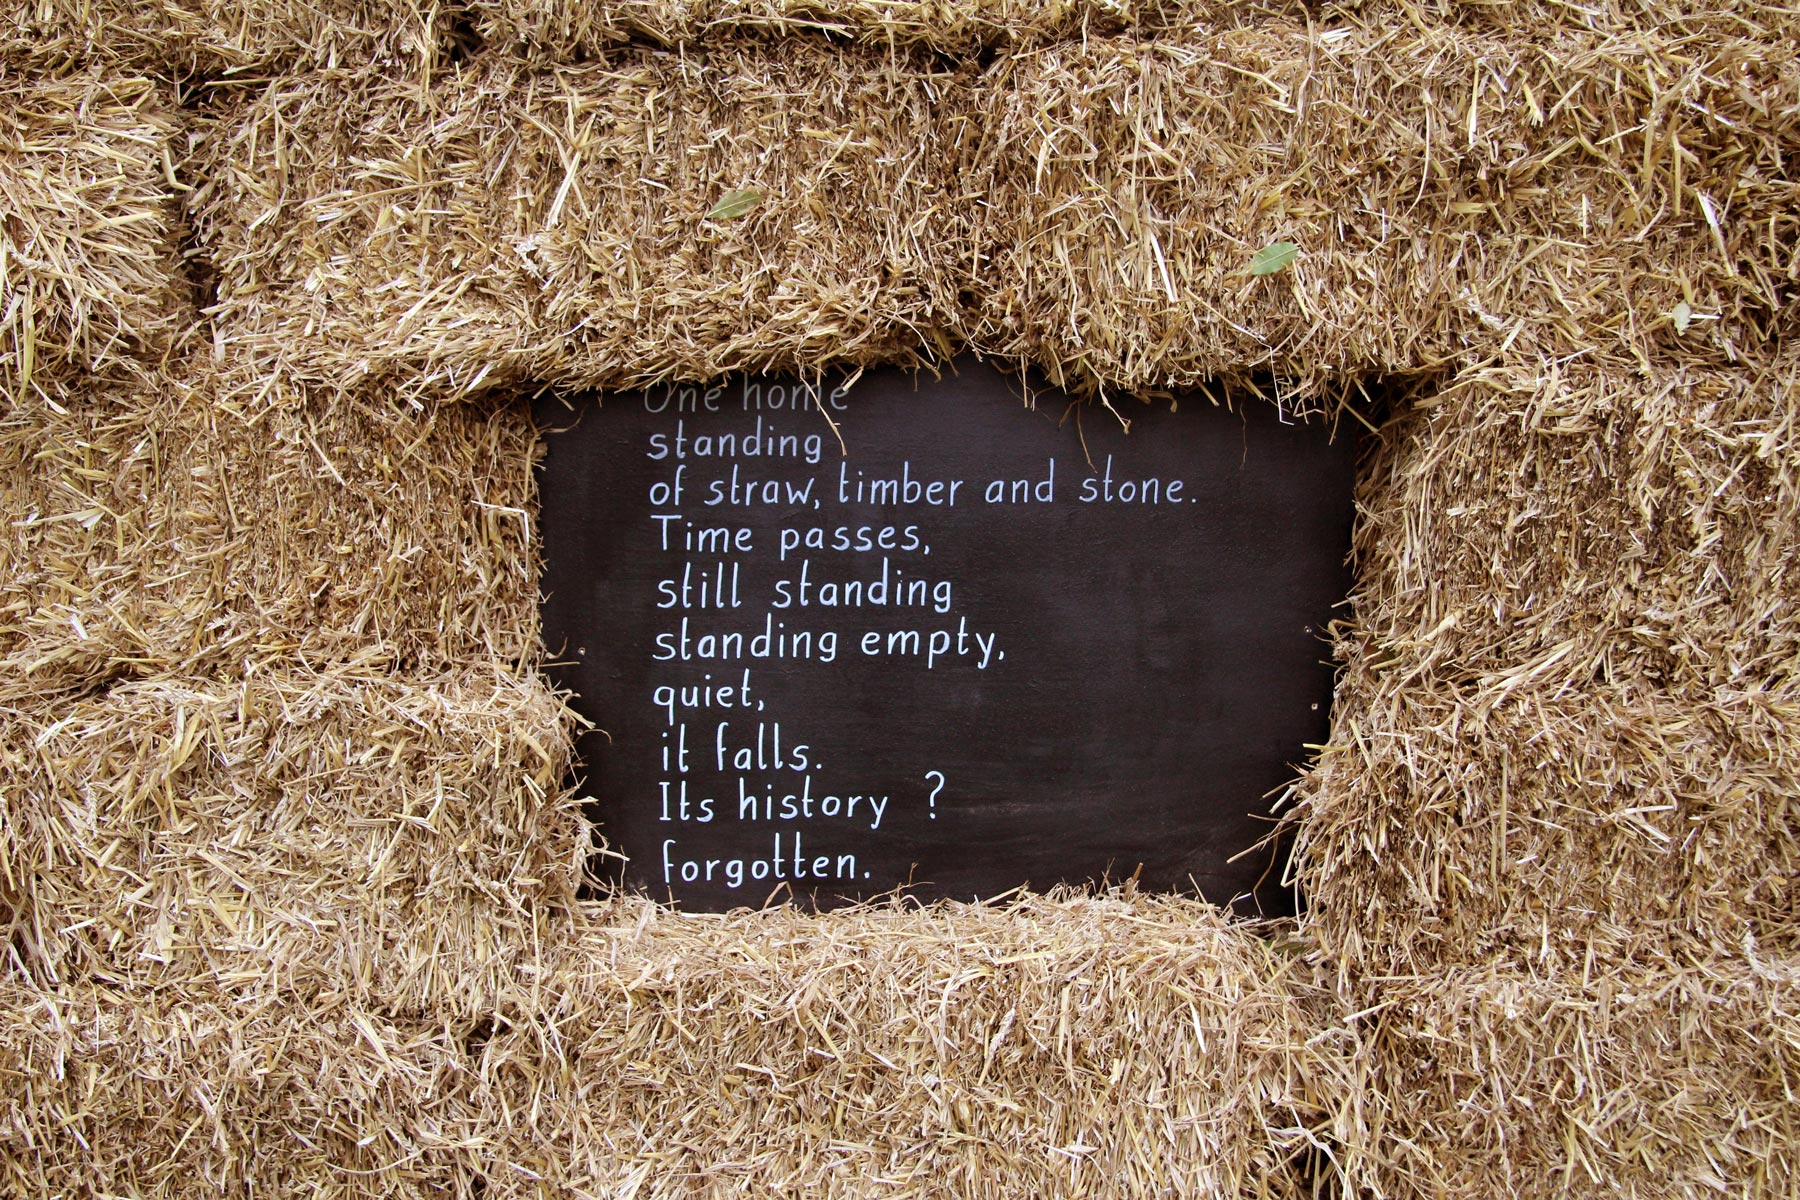 One home
standing
of straw, timber and stone.
Time passes,
still standing
standing empty,
quiet,
it falls.
Its history ?
forgotten.